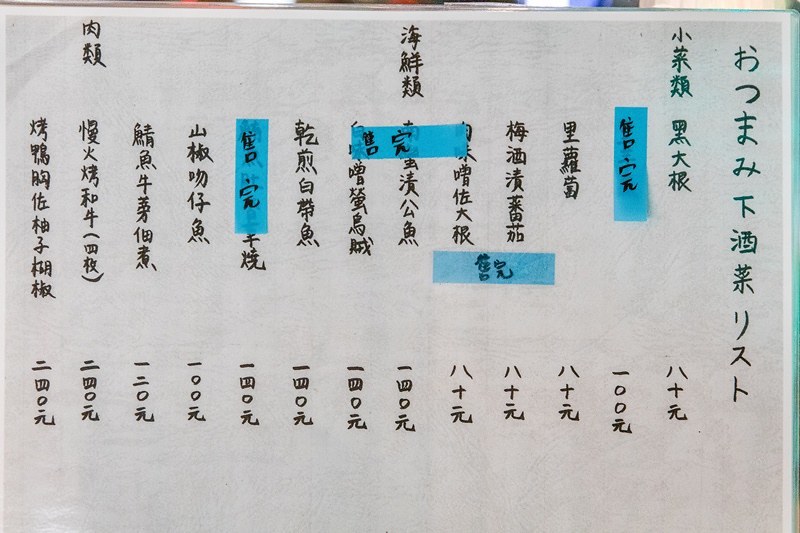 おつまみ下酒菜リスト
小菜類
黑大根 八十元
售完 一〇〇元
里蘿蔔 八十元
梅酒漬蕃茄 八十元
肉味噌佐大根 八十元
售完
海鮮類
漬公魚 一四〇元
售完
味噌螢烏賊 一四〇元
乾煎白帶魚 一四〇元
售完 燒 一四〇元
山椒吻仔魚 一〇〇元
鯖魚牛蒡佃煮 一二〇元
肉類
慢火烤和牛(四枚) 二四〇元
烤鴨胸佐柚子椒 二四〇元